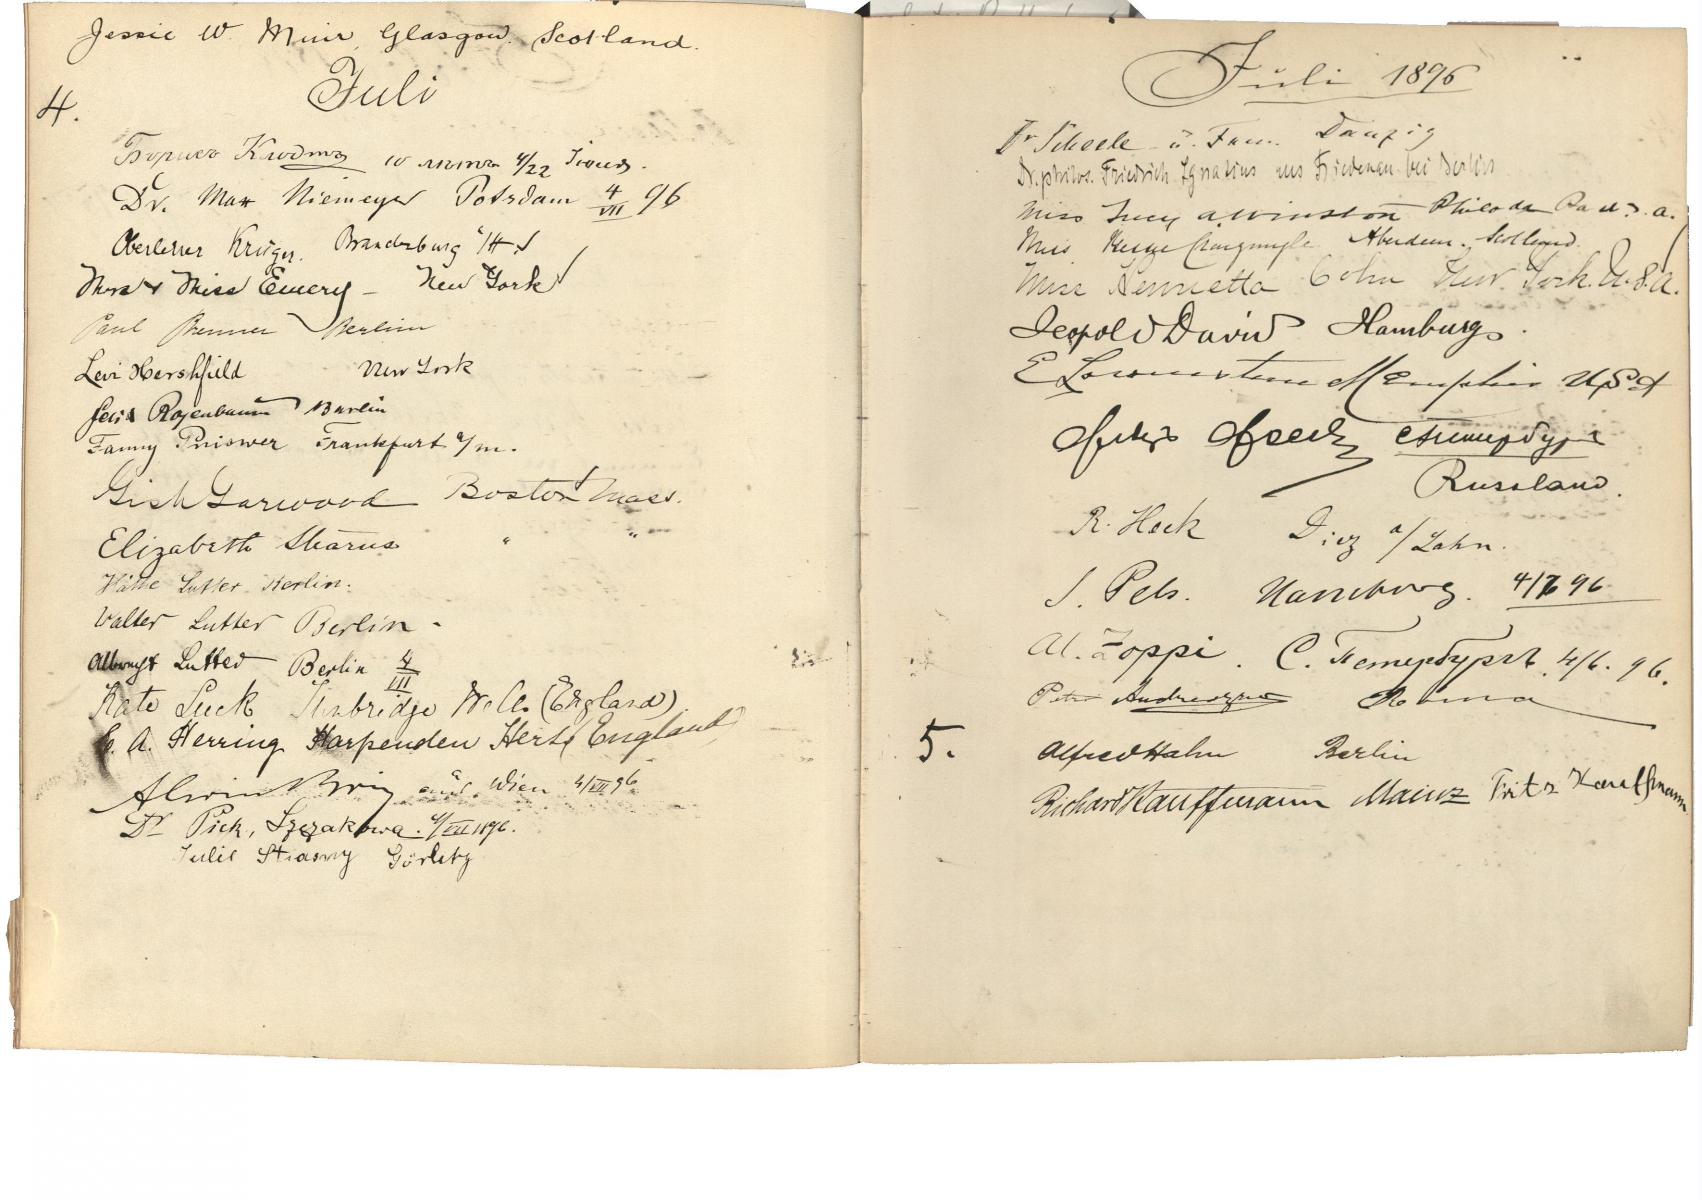 Jessie W. Muir, Glasgow. Scotland.
Juli
4.
4/22
Dr. Max Niemeyer Potsdam 4/VII 96
Oberlehrer Krüger. Brandenburg a/H
Mrs & Miss Emery – New York
Paul Brenner Berlin
Levi Hershfield New York
Rosenbaum Berlin
Fanny Pniower Frankfurt a/m.
Garwood Boston Mass.
Elizabeth " "
Käthe Lutter Berlin.
Walter Lutter Berlin -
Albrecht Lutter Berlin 4/VII
Kate Luck Tunbridge Wells (England)
E. A. Herring Harpenden Herts England
Alwin aus Wien 4/VII 96
Dr Pick, Szczakowa. 4/VII 1896.
Görlitz
Juli 1896
Dr Scheele u. Fam. Danzig
Dr. philos. Friedrich Ignatius aus Friedenau bei Berlin
Miss Lucy Philada Pa U.S.A.
Miss Aberdeen, Scotland.
Miss Henrietta Cohn New York. U.S.A.
Leopold David Hamburg.
E Lowenstein Memphis USA
Russland.
R. Heck Diez a/Lahn.
S. Pels. Hamburg. 4/7 96
Al. Zoppi. С. Петербургъ. 4/6. 96.
Roma
5.
Alfred Hahn Berlin
Richard Kauffmann Mainz Fritz Kauffmann